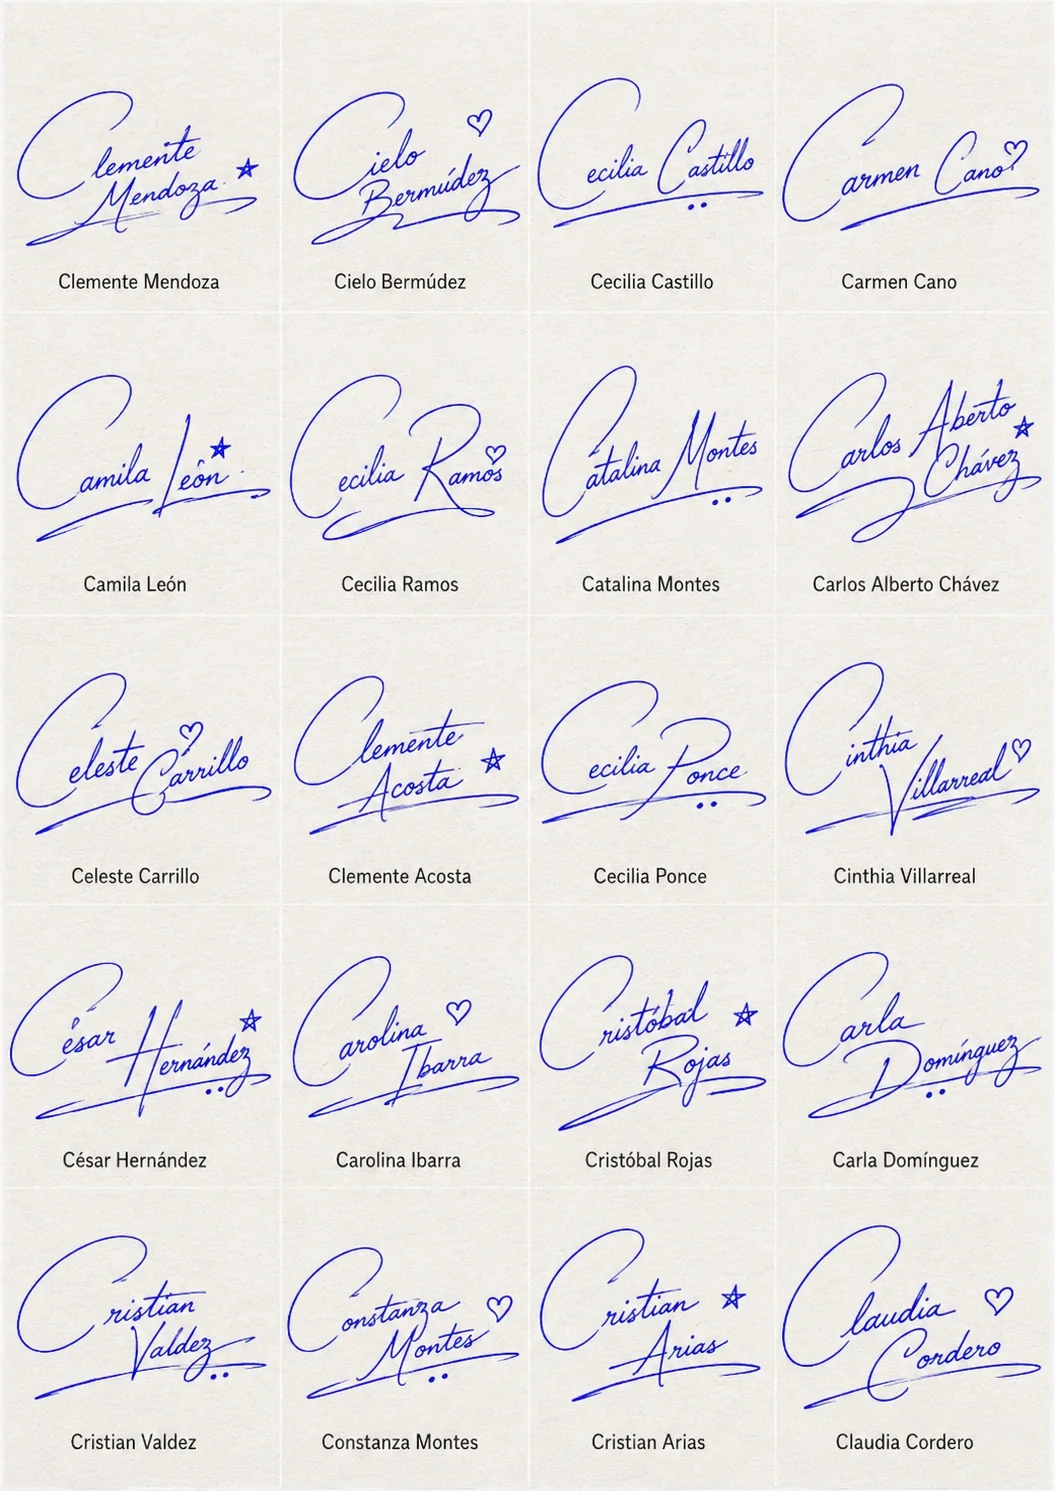 Clemente
Mendoza
Clemente Mendoza
Cielo
Bermúdez
Cielo Bermúdez
Cecilia Castillo
Cecilia Castillo
Carmen Cano
Carmen Cano
Camila León
Camila León
Cecilia Ramos
Cecilia Ramos
Catalina Montes
Catalina Montes
Carlos Aberto
Chávez
Carlos Alberto Chávez
Celeste Carrillo
Celeste Carrillo
Clemente
Acosta
Clemente Acosta
Cecilia Ponce
Cecilia Ponce
Cinthia
Villarreal
Cinthia Villarreal
César Hernández
César Hernández
Carolina
Ibarra
Carolina Ibarra
Cristóbal
Rojas
Cristóbal Rojas
Carla
Domínguez
Carla Domínguez
Cristian
Valdez
Cristian Valdez
Constanza
Montes
Constanza Montes
Cristian
Arias
Cristian Arias
Claudia
Cordero
Claudia Cordero